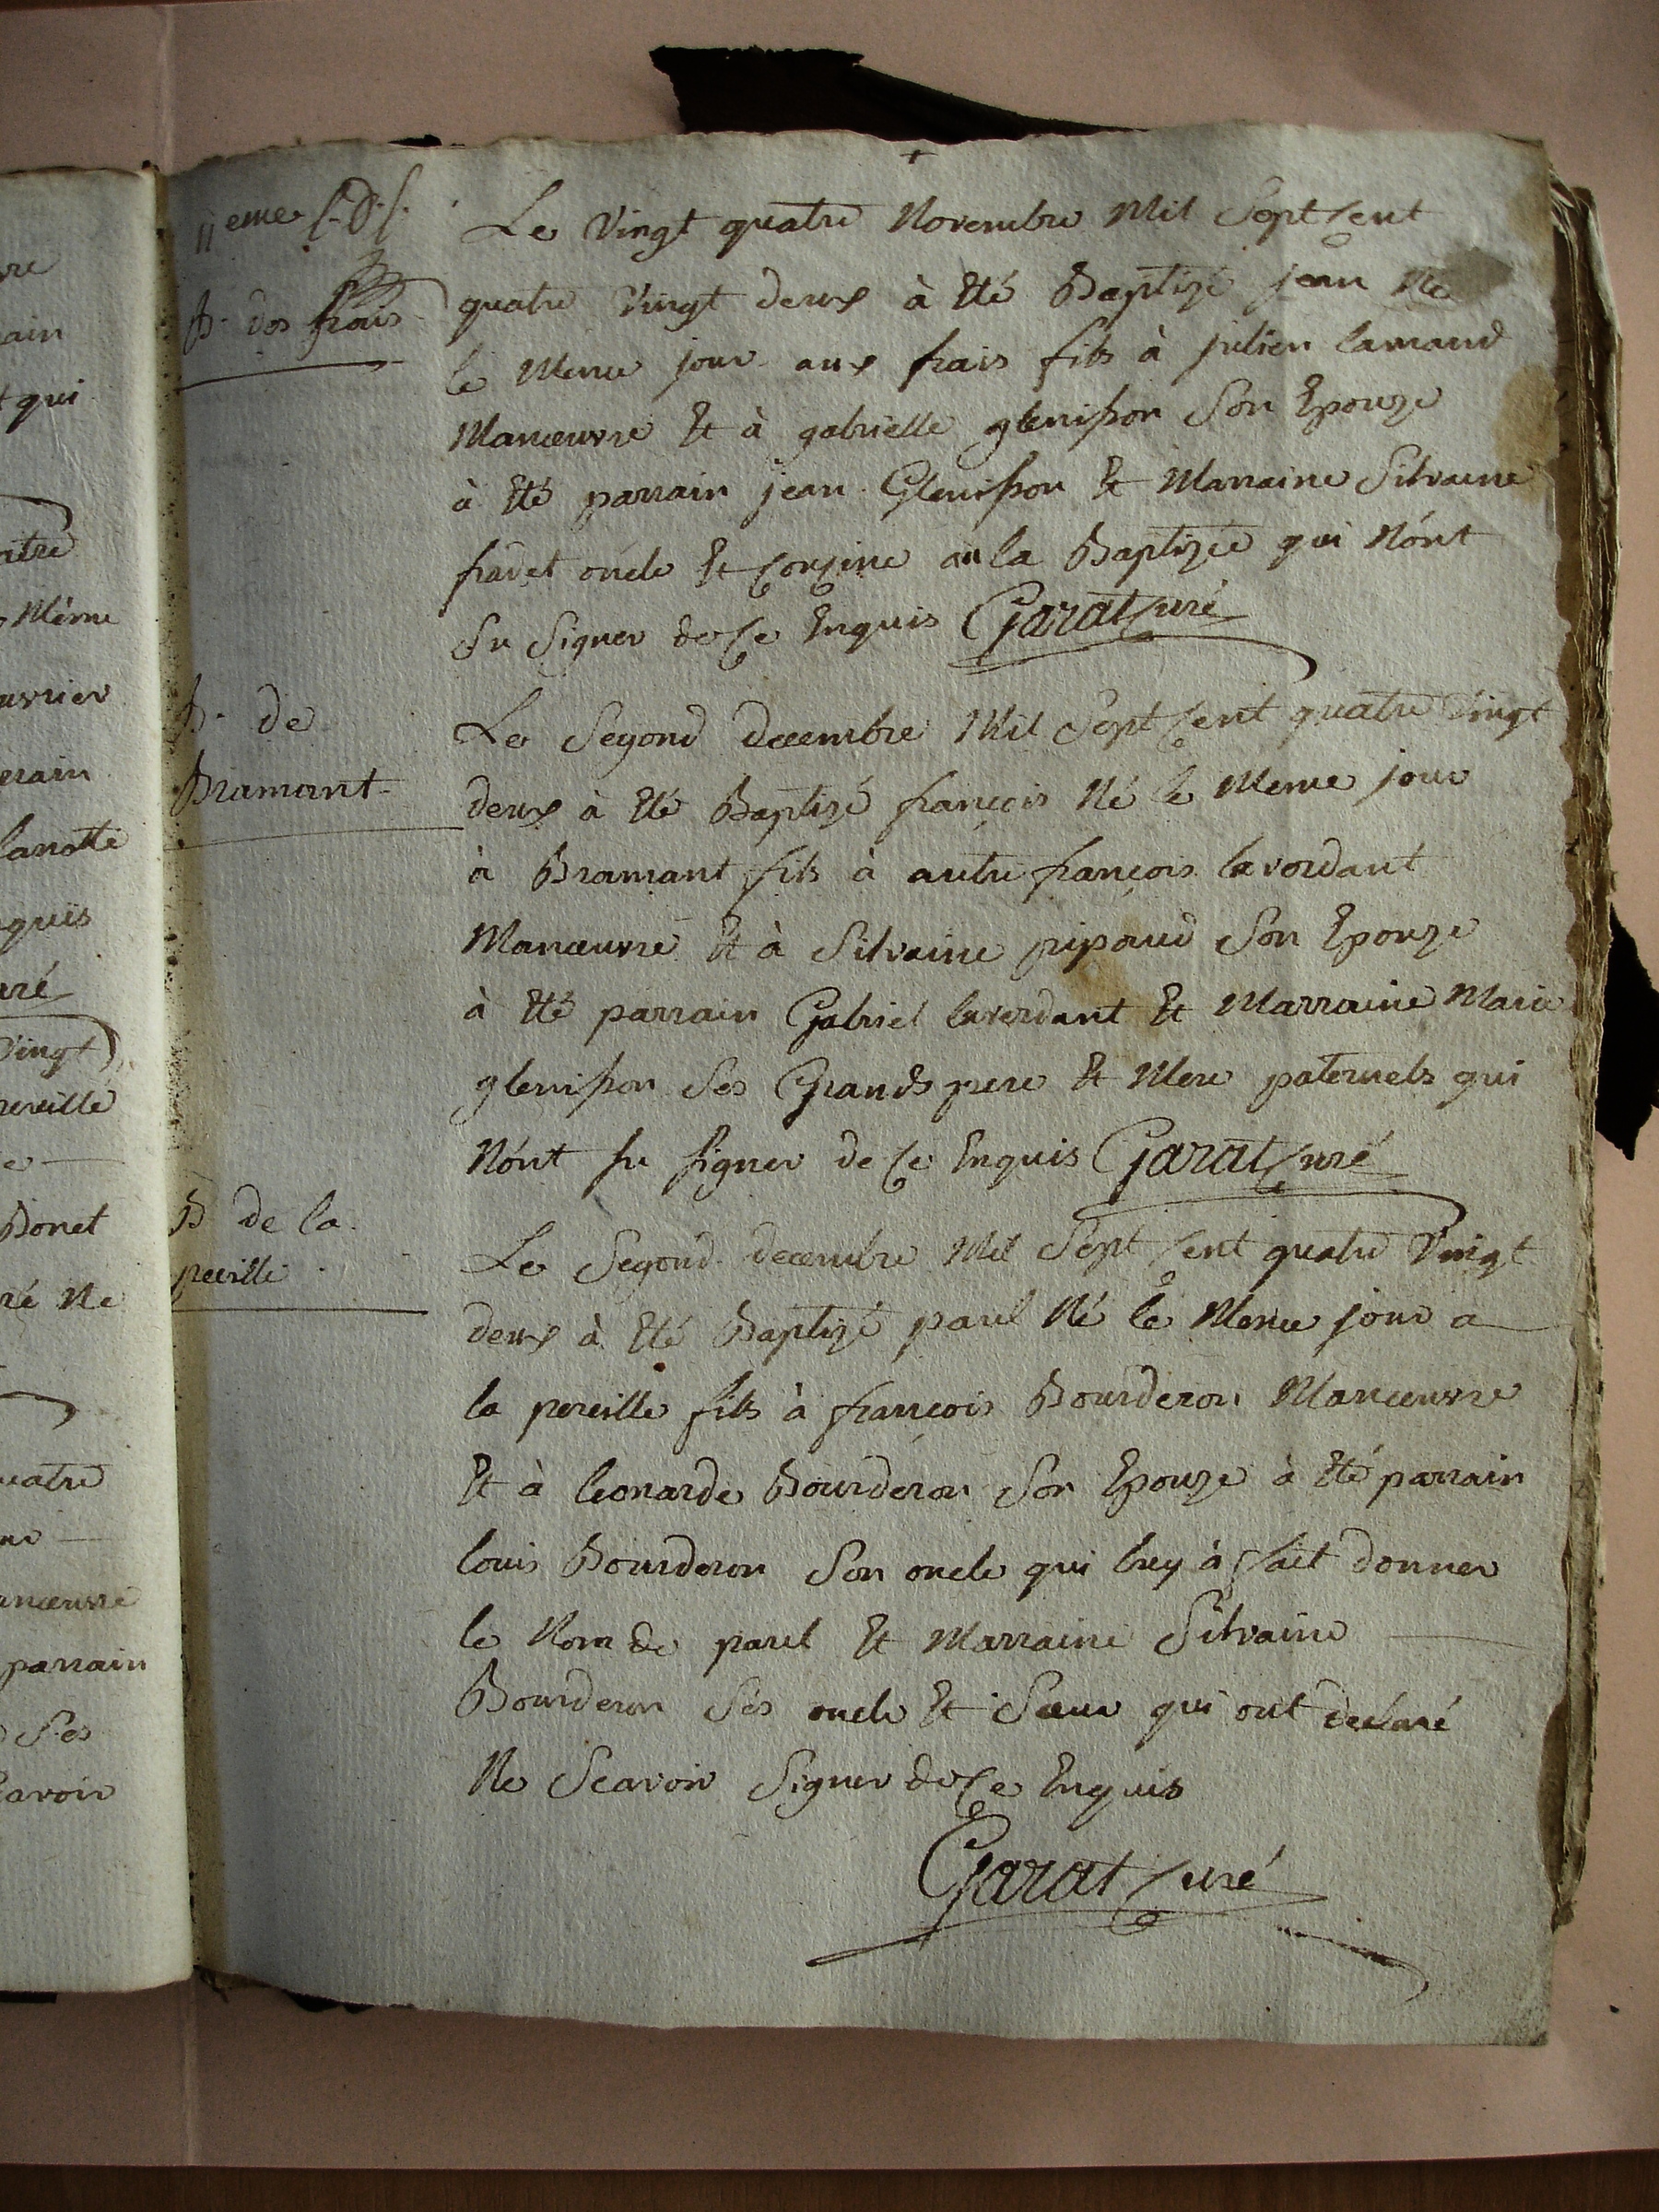 11eme
B. dos frais
Le Vingt quatre Novembre Mil Sept Cent
quatre Vingt deux à Eté Baptizé jean Né
le Meme jour aux frais fils à julien lamaud
Manœuvre Et à gabrielle glenisson Son Epouze
à Eté parrain jean Glenisson Et Marraine Silvaine
fradet oncle Et Cousine a la Baptizée qui Nónt
Su Signer de Ce Enquis Garat Curé
B. de
Bramant
Le Segond decembre Mil Sept Cent quatre Vingt
deux à Eté Baptizé françois Né le Meme jour
à Bramant fils à autre françois lavordant
Manœuvre Et à Silvaine pipaud Son Epouze
à Eté parrain Gabriel laverdant Et Marraine Marie
glenisson Ses Grands pere Et Mere paternels qui
Nónt su signer de Ce Enquis Garat Curé
B de la
pereille
Le Segond decembre Mil Sept Cent quatre Vingt
deux à Eté Baptizé paul Né le Meme jour a
la pereille fils à françois Bourderon Manœuvre
Et à leonarde Bourderon Son Epouze à Eté parrain
louis Bourderon Son oncle qui luy à fait donner
le Nom de paul Et Marraine Silvaine
Bourderon Ses oncle Et Sœur qui ont declaré
Ne Scavoir Signer de Ce Enquis
Garat Curé